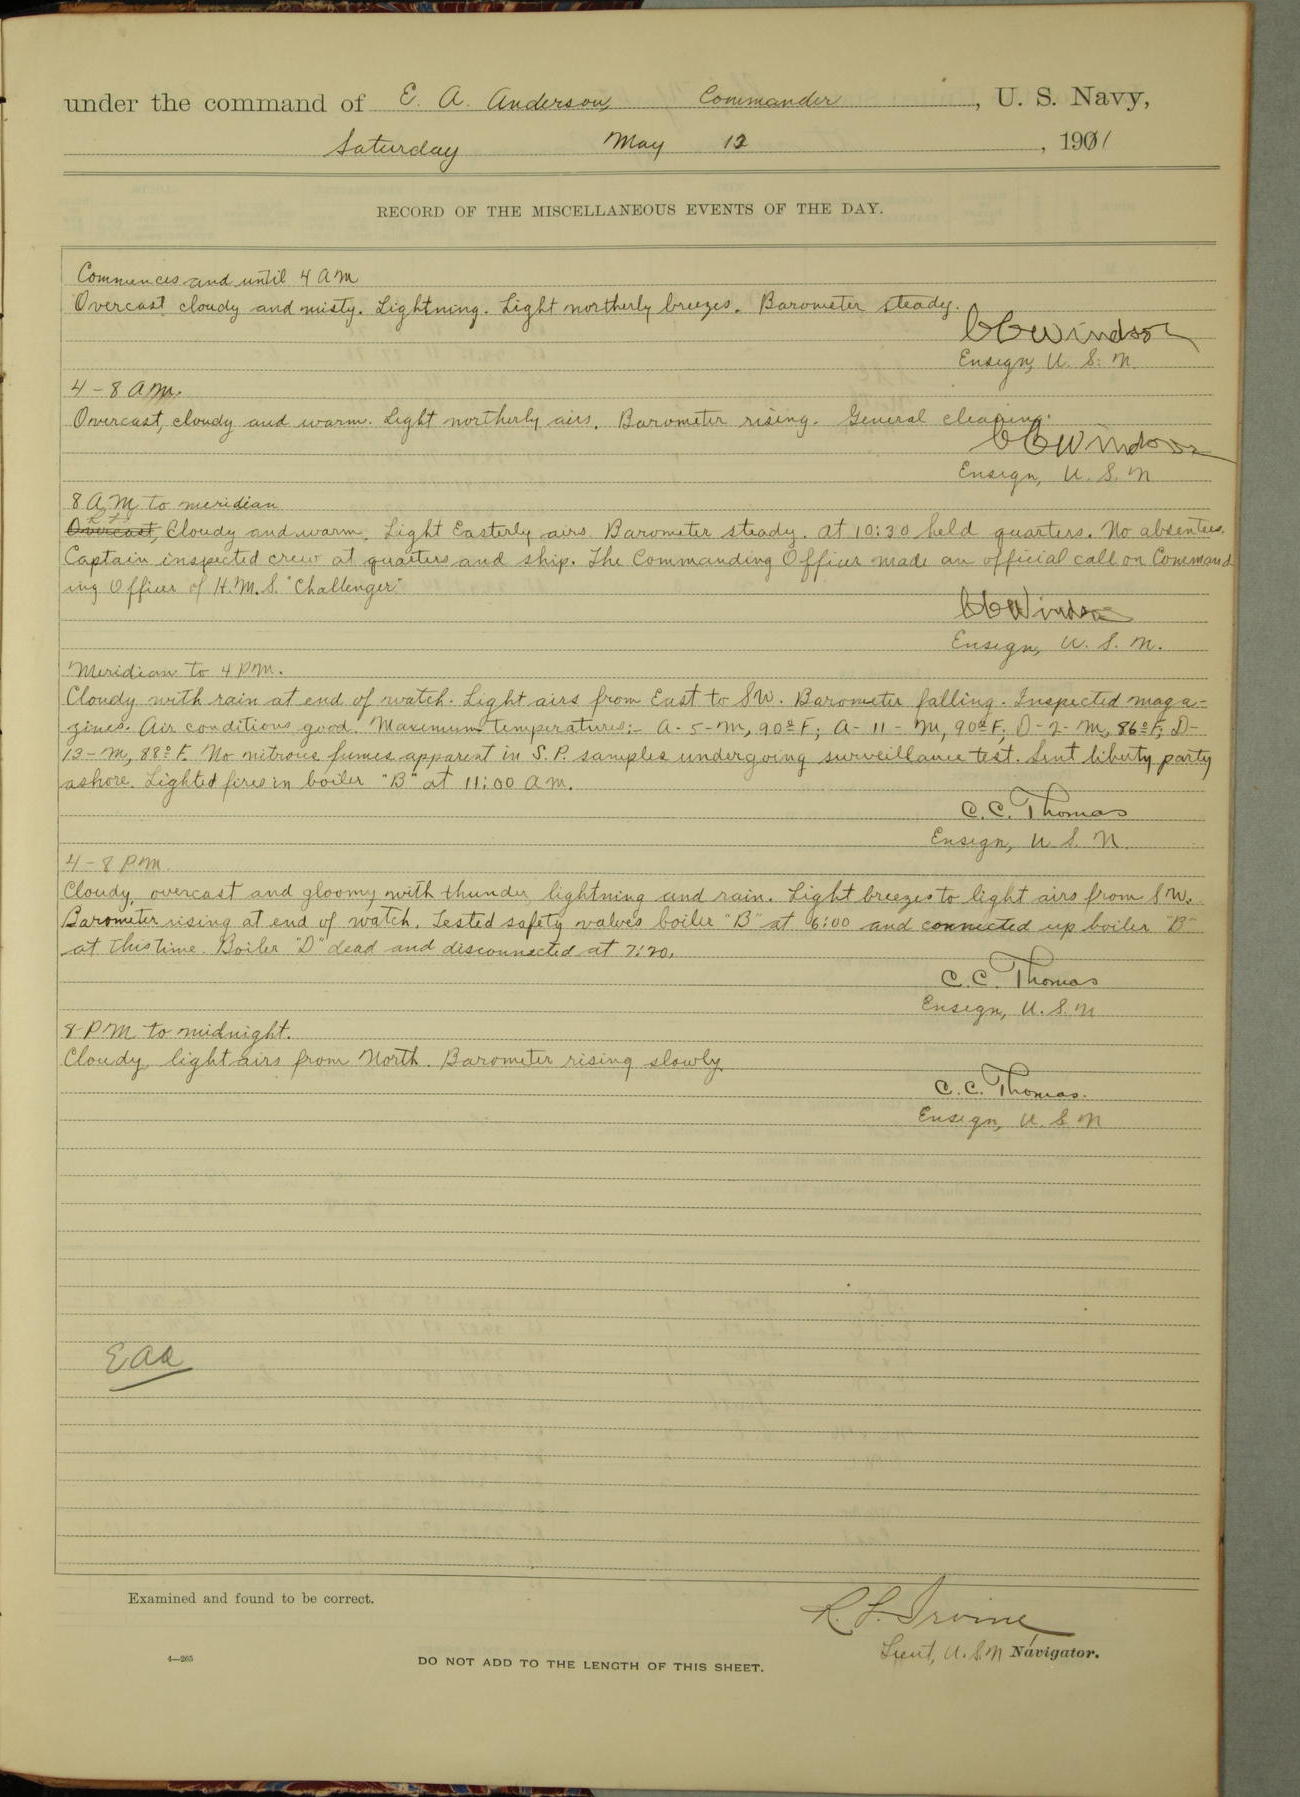 under the command of E. A. Anderson, Commander, U. S. Navy,
Saturday May 12, 1901
RECORD OF THE MISCELLANEOUS EVENTS OF THE DAY.
Commences and until 4 A M
Overcast cloudy and misty. Lightning. Light northerly breezes. Barometer steady.
C C Windsor
Ensign, U. S. N.
4 - 8 A.M.
Overcast, cloudy and warm. Light northerly airs. Barometer rising. General cleaning.
C C Windsor
Ensign, U. S. N
8 A M to meridian
Overcast, Cloudy and warm. Light Easterly airs. Barometer steady. At 10:30 held quarters. No absentees.
Captain inspected crew at quarters and ship. The Commanding Officer made an official call on Command
ing Officer of H.M.S. "Challenger"
C C Windsor
Ensign, U. S. N.
Meridian to 4 P.M.
Cloudy with rain at end of watch. Light airs from East to SW. Barometer falling. Inspected maga-
zines. Air conditions good. Maximum temperatures:- A-5-M, 90º F; A-11-M, 90º F; D-2-M, 86º F; D-
13-M, 88º F. No nitrous fumes apparent in S. P. samples undergoing surveillance test. Sent liberty party
ashore. Lighted fires in boiler "B" at 11:00 A M.
C. C. Thomas
Ensign, U. S. N.
4 - 8 P.M.
Cloudy, overcast and gloomy with thunder, lightning and rain. Light breezes to light airs from S W.
Barometer rising at end of watch. Tested safety valves boiler "B" at 6:00 and connected up boiler "B"
at this time. Boiler "D" dead and disconnected at 7:20.
C. C. Thomas
Ensign, U. S. N
8 P M to midnight.
Cloudy, light airs from North. Barometer rising slowly.
C. C. Thomas.
Ensign, U. S. N
E A A
Examined and found to be correct.
R. L. Irvine,
Lieut, U. S. N Navigator.
4—265
DO NOT ADD TO THE LENGTH OF THIS SHEET.